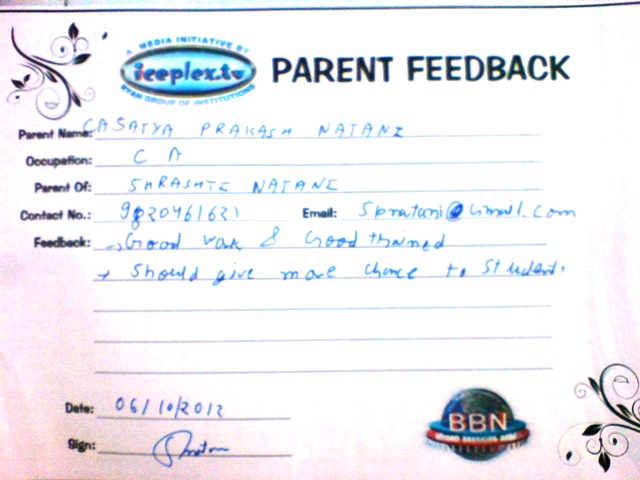 A MEDIA INITIATIVE BY
iceplex.tv
RYAN GROUP OF INSTITUTIONS
PARENT FEEDBACK
Parent Name: CA SATYA PRAKASH NATANI
Occupation: C A
Parent Of: SHRASHTI NATANI
Contact No.: 9820461621 Email: Spnatani@Gmail.com
Feedback: → Good work & Good trained
→ Should give more chance to Student.
Date: 06/10/2012
Sign:
BBN